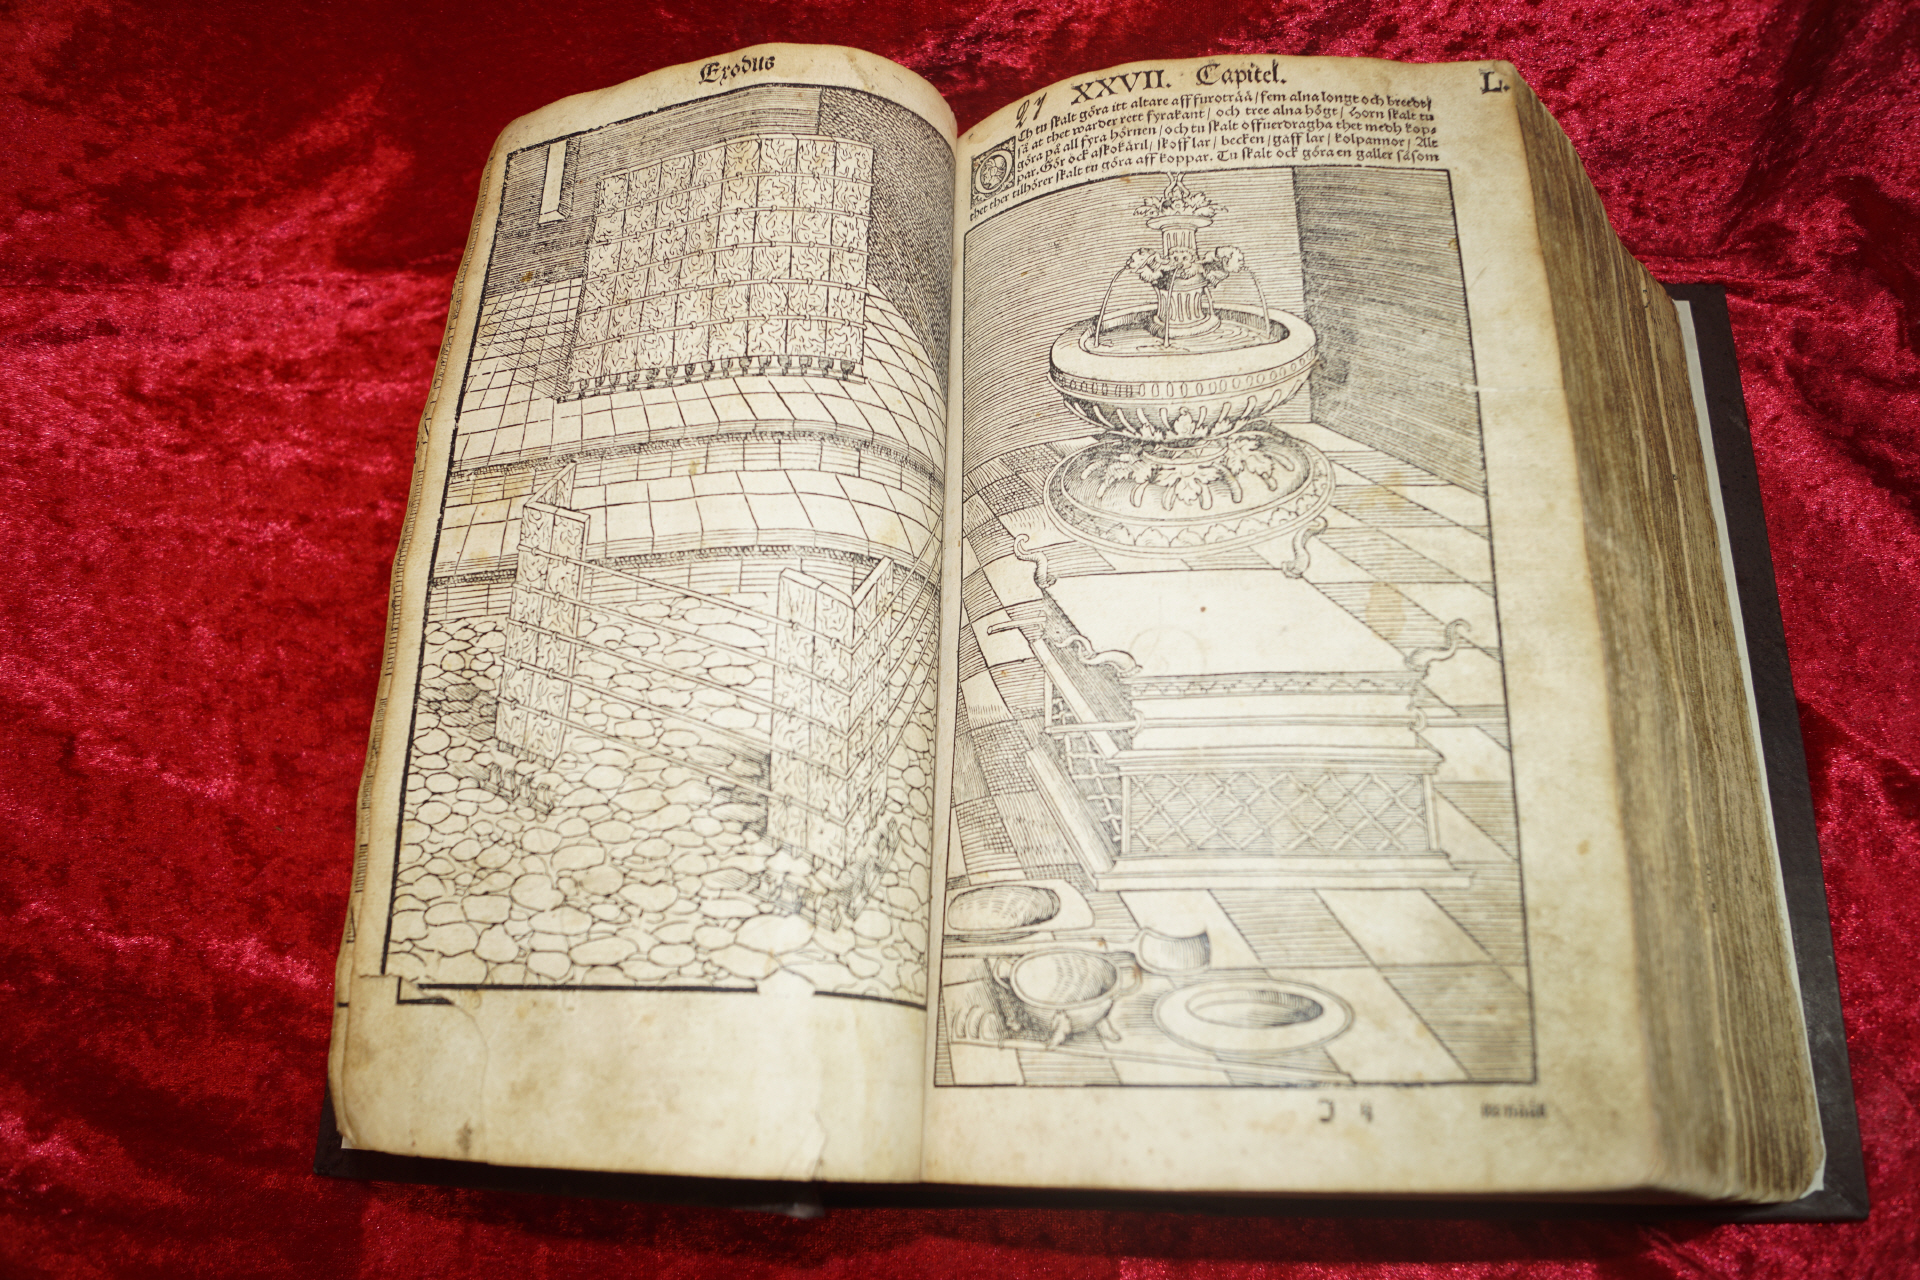 Exodus
XXVII. Capitel.
L.
OCh tu skalt göra itt altare aff furoträä / fem alna longt och breedt /
så at thet warder rett fyrakant / och tree alna högt / Horn skalt tu
göra på all fyra hörnen / och tu skalt offuerdragha thet medh kop⸗
par. Gör ock askokäril / skofflar / becken / gafflar / kolpannor / Alt
thet ther tilhörer skalt tu göra aff koppar. Tu skalt ock göra en galler såsom
J ij